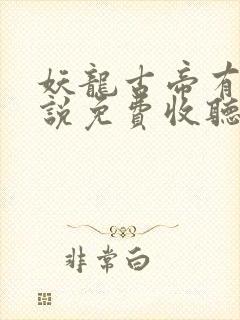 妖龍古帝有
說免費收聽
非常白